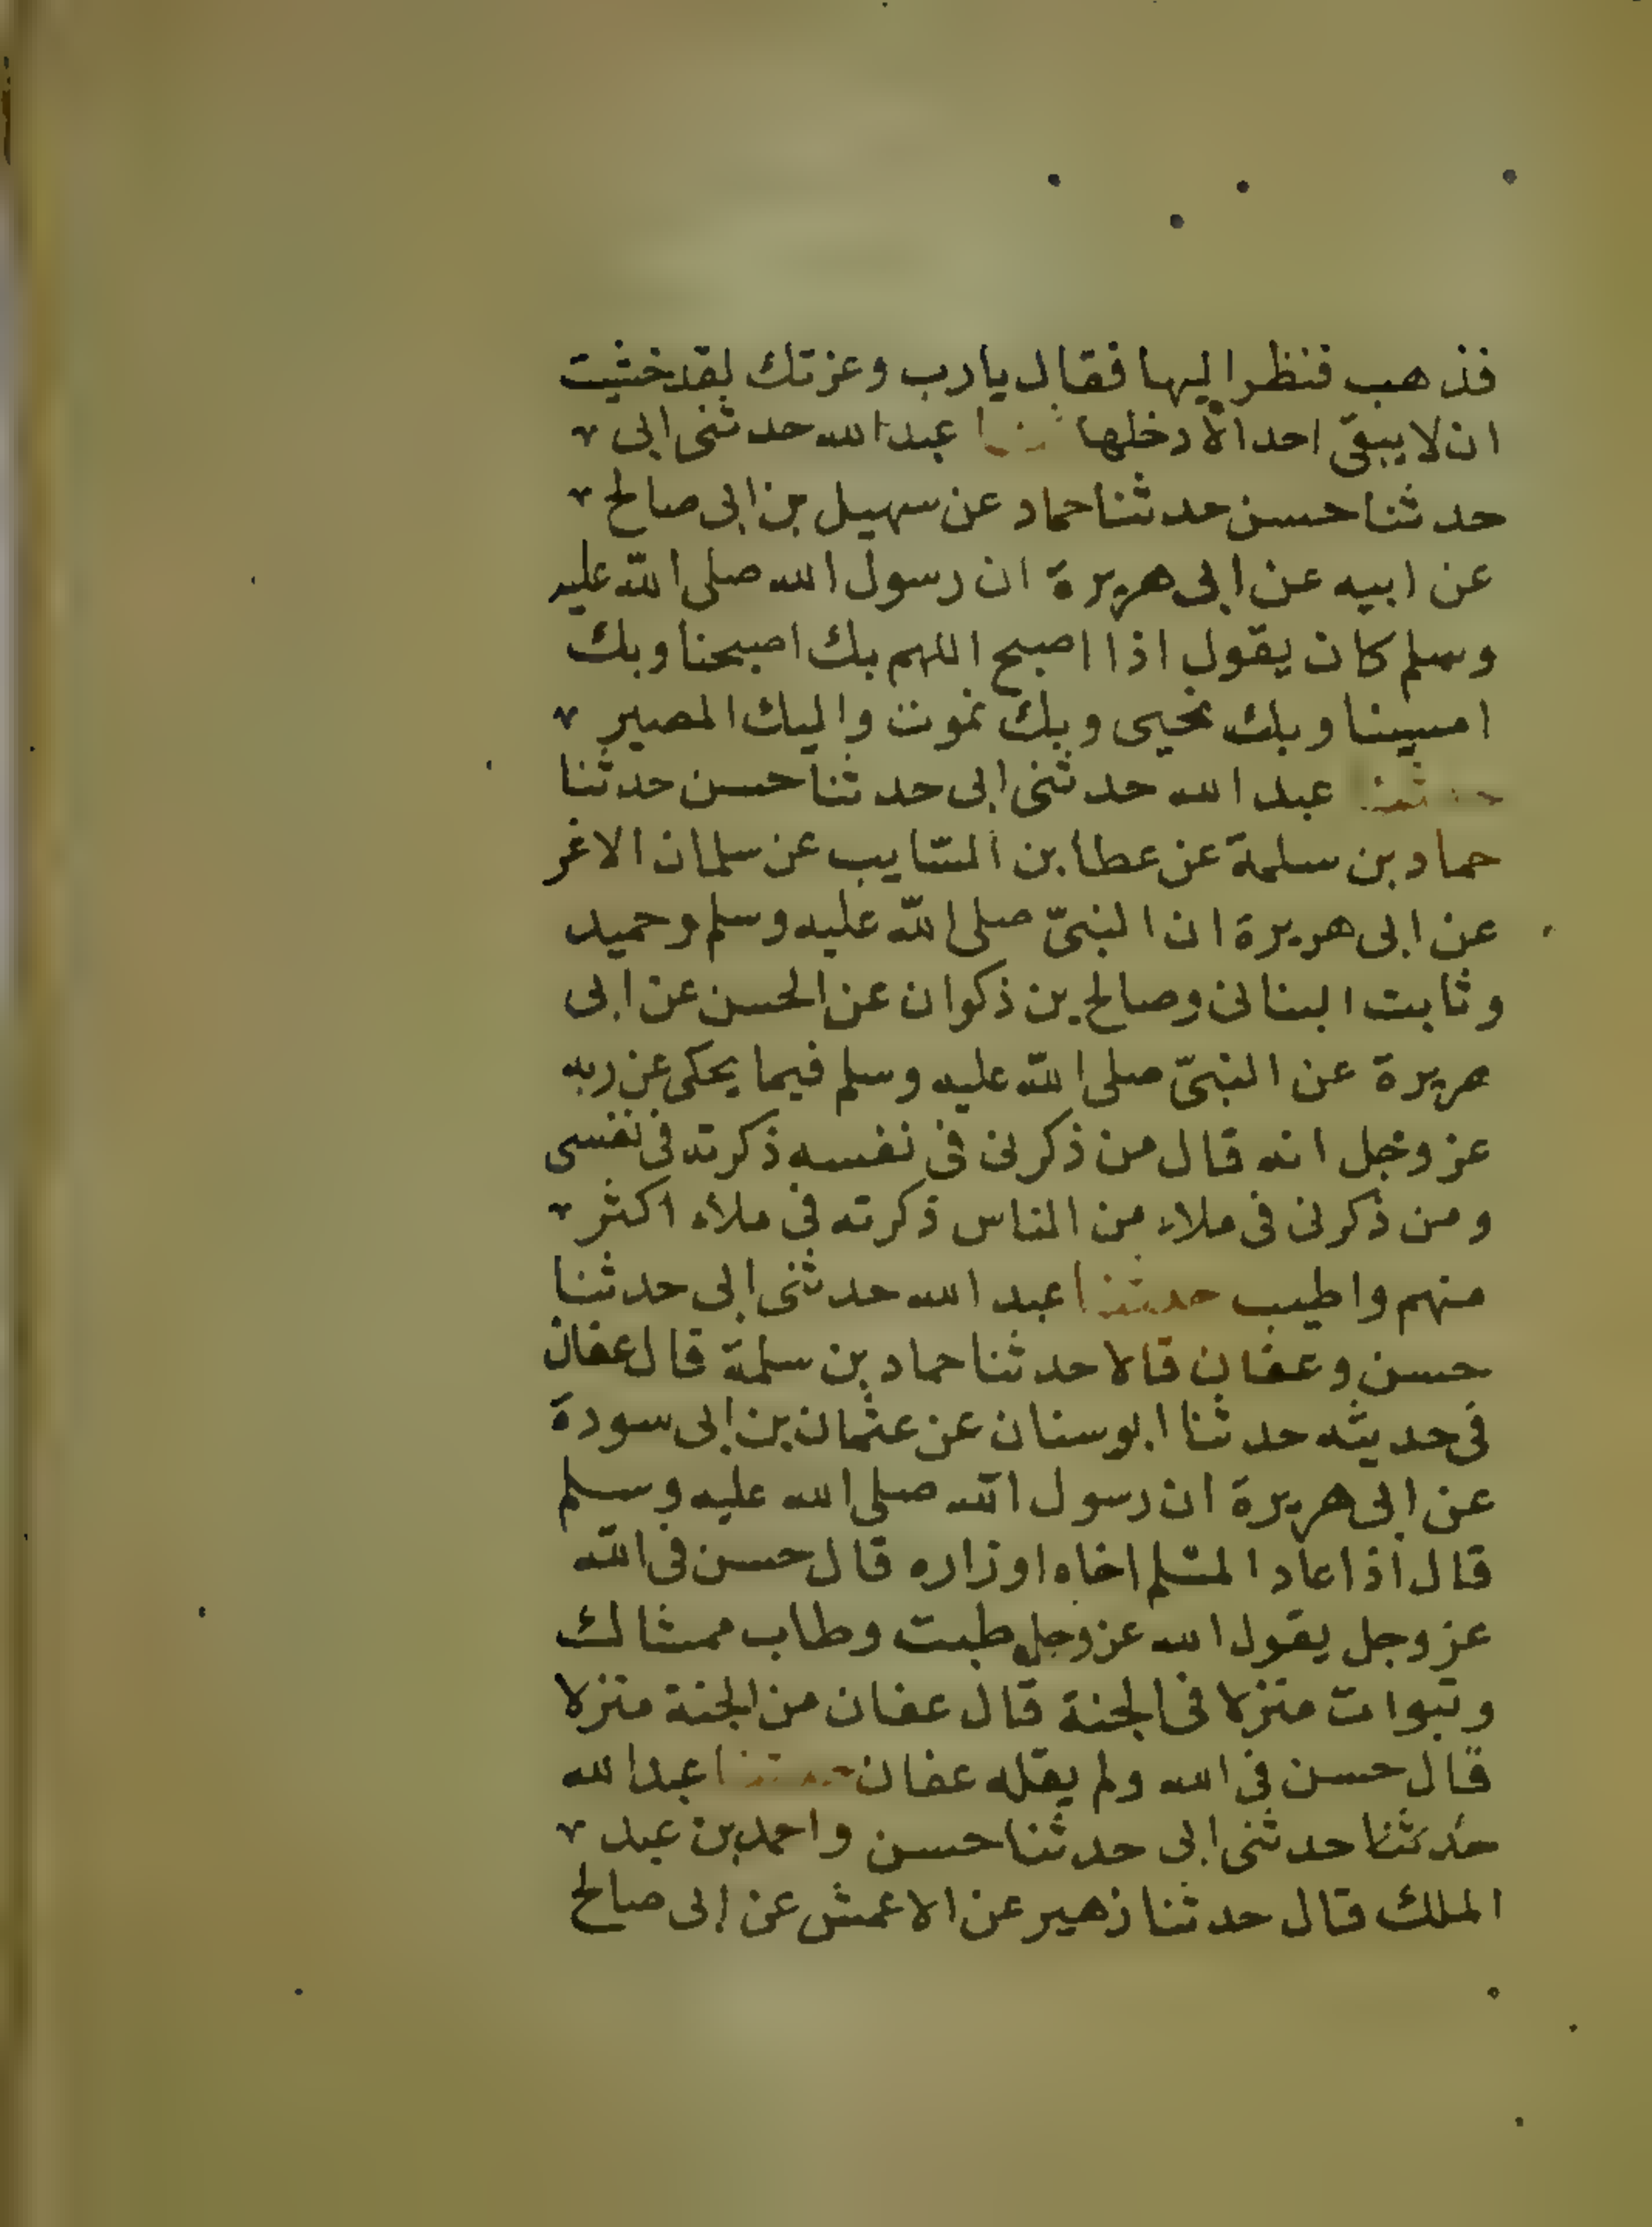 فذهب فنظر اليها فقال يا رب وعزتك لقد خشيت
ان لا يبقى احد الا دخلها عبد الله حدثنى ابى
حدثنا حسن حدثنا حماد عن سهيل بن ابى صالح
عن ابيه عن ابى هريرة ان رسول الله صلى الله عليه
وسلم كان يقول اذا اصبح اللهم بك اصبحنا وبك
امسينا وبك نحيى وبك نموت واليك المصير
حدثنا عبد الله حدثنى ابى حدثنا حسن حدثنا
حماد بن سلمة عن عطا بن السّايب عن سلمان الاغر
عن ابى هريرة ان النبىّ صلى الله عليه وسلم وحميد
وثابت البنانى وصالح بن ذكوان عن الحسن عن ابى
هريرة عن النبىّ صلى الله عليه وسلم فيما يحكى عن ربه
عز وجل انه قال من ذكرنى فى نفسه ذكرته فى نفسى
ومن ذكرنى فى ملاء من الناس ذكرته فى ملاء اكثر
منهم واطيب حدثنا عبد الله حدثنى ابى حدثنا
حسن وعفان قالا حدثنا حماد بن سلمة قال عفان
فى حديثه حدثنا ابو سنان عن عثمان بن ابى سودة
عن ابى هريرة ان رسول الله صلى الله عليه وسلم
قال اذا عاد المسلم اخاه او زاره قال حسن فى الله
عز وجل يقول الله عز وجل طبت وطاب ممشالك
وتبوات منزلا فى الجنة قال عفان من الجنة منزلا
قال حسن فى الله ولم يقله عفان حدثنا عبد الله
حدثنا حدثنى ابى حدثنا حسن واحمد بن عبد
الملك قال حدثنا زهير عن الاعمش عن ابى صالح